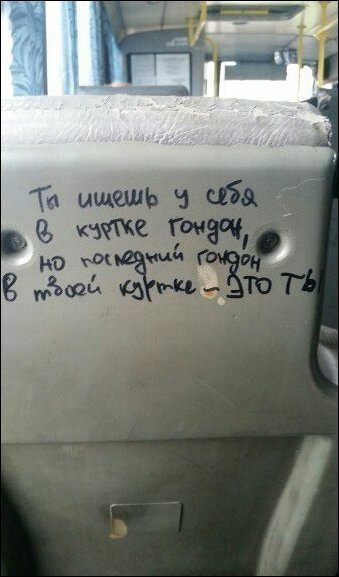 Ты ищешь у себя
в куртке гондон,
но последний гондон
в твоей куртке – ЭТО ТЫ